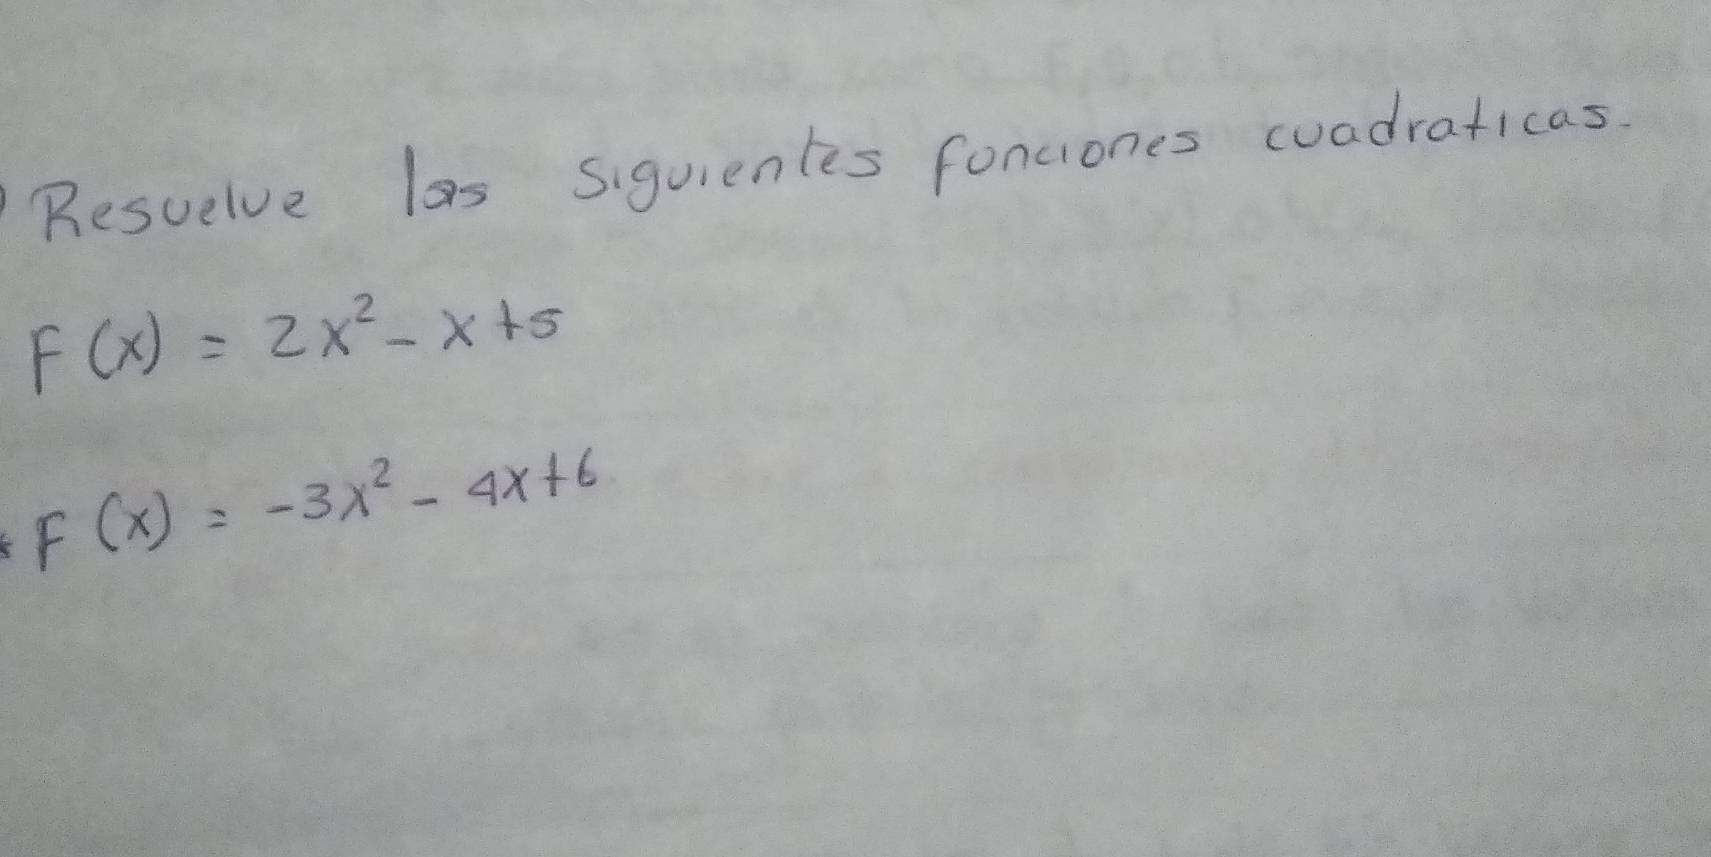 Resuelve las siguientes funciones cuadraticas.
F(x) = 2x² - x + 5
* F(x) = -3x² - 4x + 6